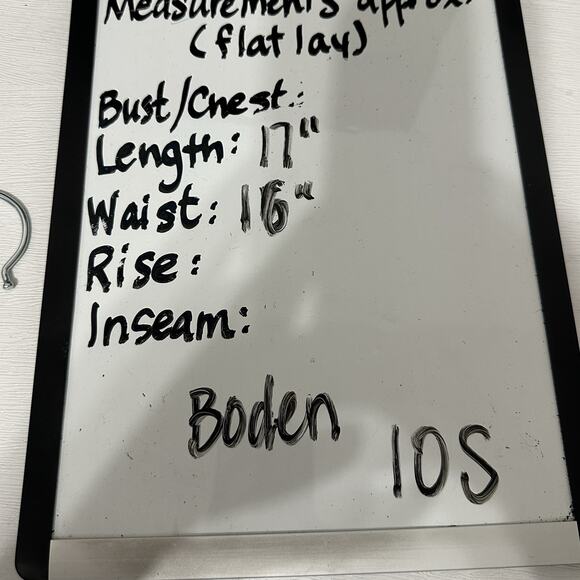 Measurements approx.
(flat lay)
Bust/Chest:
Length: 17"
Waist: 16"
Rise:
Inseam:
Boden
10S